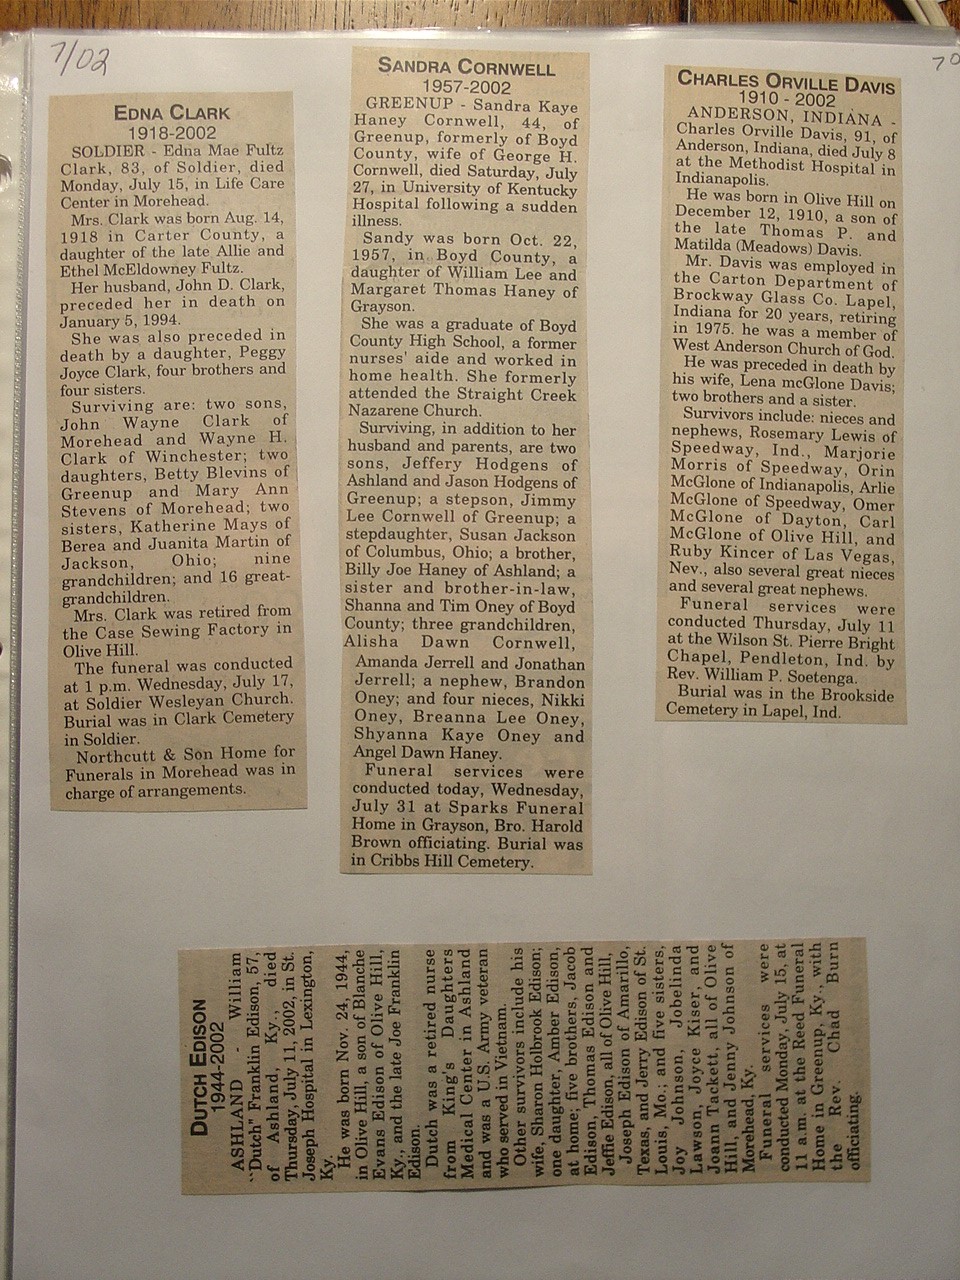 7/02
70
EDNA CLARK
1918-2002
SOLDIER - Edna Mae Fultz
Clark, 83, of Soldier, died
Monday, July 15, in Life Care
Center in Morehead.
Mrs. Clark was born Aug. 14,
1918 in Carter County, a
daughter of the late Allie and
Ethel McEldowney Fultz.
Her husband, John D. Clark,
preceded her in death on
January 5, 1994.
She was also preceded in
death by a daughter, Peggy
Joyce Clark, four brothers and
four sisters.
Surviving are: two sons,
John Wayne Clark of
Morehead and Wayne H.
Clark of Winchester; two
daughters, Betty Blevins of
Greenup and Mary Ann
Stevens of Morehead; two
sisters, Katherine Mays of
Berea and Juanita Martin of
Jackson, Ohio; nine
grandchildren; and 16 great-
grandchildren.
Mrs. Clark was retired from
the Case Sewing Factory in
Olive Hill.
The funeral was conducted
at 1 p.m. Wednesday, July 17,
at Soldier Wesleyan Church.
Burial was in Clark Cemetery
in Soldier.
Northcutt & Son Home for
Funerals in Morehead was in
charge of arrangements.
SANDRA CORNWELL
1957-2002
GREENUP - Sandra Kaye
Haney Cornwell, 44, of
Greenup, formerly of Boyd
County, wife of George H.
Cornwell, died Saturday, July
27, in University of Kentucky
Hospital following a sudden
illness.
Sandy was born Oct. 22,
1957, in Boyd County, a
daughter of William Lee and
Margaret Thomas Haney of
Grayson.
She was a graduate of Boyd
County High School, a former
nurses' aide and worked in
home health. She formerly
attended the Straight Creek
Nazarene Church.
Surviving, in addition to her
husband and parents, are two
sons, Jeffery Hodgens of
Ashland and Jason Hodgens of
Greenup; a stepson, Jimmy
Lee Cornwell of Greenup; a
stepdaughter, Susan Jackson
of Columbus, Ohio; a brother,
Billy Joe Haney of Ashland; a
sister and brother-in-law,
Shanna and Tim Oney of Boyd
County; three grandchildren,
Alisha Dawn Cornwell,
Amanda Jerrell and Jonathan
Jerrell; a nephew, Brandon
Oney; and four nieces, Nikki
Oney, Breanna Lee Oney,
Shyanna Kaye Oney and
Angel Dawn Haney.
Funeral services were
conducted today, Wednesday,
July 31 at Sparks Funeral
Home in Grayson, Bro. Harold
Brown officiating. Burial was
in Cribbs Hill Cemetery.
CHARLES ORVILLE DAVIS
1910 - 2002
ANDERSON, INDIANA -
Charles Orville Davis, 91, of
Anderson, Indiana, died July 8
at the Methodist Hospital in
Indianapolis.
He was born in Olive Hill on
December 12, 1910, a son of
the late Thomas P. and
Matilda (Meadows) Davis.
Mr. Davis was employed in
the Carton Department of
Brockway Glass Co. Lapel,
Indiana for 20 years, retiring
in 1975. he was a member of
West Anderson Church of God.
He was preceded in death by
his wife, Lena mcGlone Davis;
two brothers and a sister.
Survivors include: nieces and
nephews, Rosemary Lewis of
Speedway, Ind., Marjorie
Morris of Speedway, Orin
McGlone of Indianapolis, Arlie
McGlone of Speedway, Omer
McGlone of Dayton, Carl
McGlone of Olive Hill, and
Ruby Kincer of Las Vegas,
Nev., also several great nieces
and several great nephews.
Funeral services were
conducted Thursday, July 11
at the Wilson St. Pierre Bright
Chapel, Pendleton, Ind. by
Rev. William P. Soetenga.
Burial was in the Brookside
Cemetery in Lapel, Ind.
DUTCH EDISON
1944-2002
ASHLAND - William
"Dutch" Franklin Edison, 57,
of Ashland, Ky., died
Thursday, July 11, 2002, in St.
Joseph Hospital in Lexington,
Ky.
He was born Nov. 24, 1944,
in Olive Hill, a son of Blanche
Evans Edison of Olive Hill,
Ky., and the late Joe Franklin
Edison.
Dutch was a retired nurse
from King's Daughters
Medical Center in Ashland
and was a U.S. Army veteran
who served in Vietnam.
Other survivors include his
wife, Sharon Holbrook Edison;
one daughter, Amber Edison,
at home; five brothers, Jacob
Edison, Thomas Edison and
Jeffie Edison, all of Olive Hill,
Joseph Edison of Amarillo,
Texas, and Jerry Edison of St.
Louis, Mo.; and five sisters,
Joy Johnson, Jobelinda
Lawson, Joyce Kiser, and
Joann Tackett, all of Olive
Hill, and Jenny Johnson of
Morehead, Ky.
Funeral services were
conducted Monday, July 15, at
11 a.m. at the Reed Funeral
Home in Greenup, Ky., with
the Rev. Chad Burn
officiating.